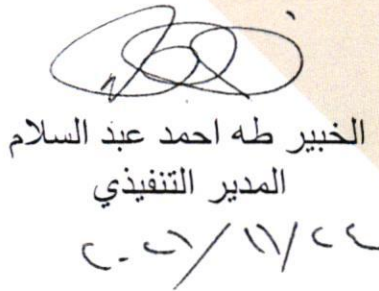 الخبير طه احمد عبد السلام
المدير التنفيذي
٢٠٢١/١١/٢٤